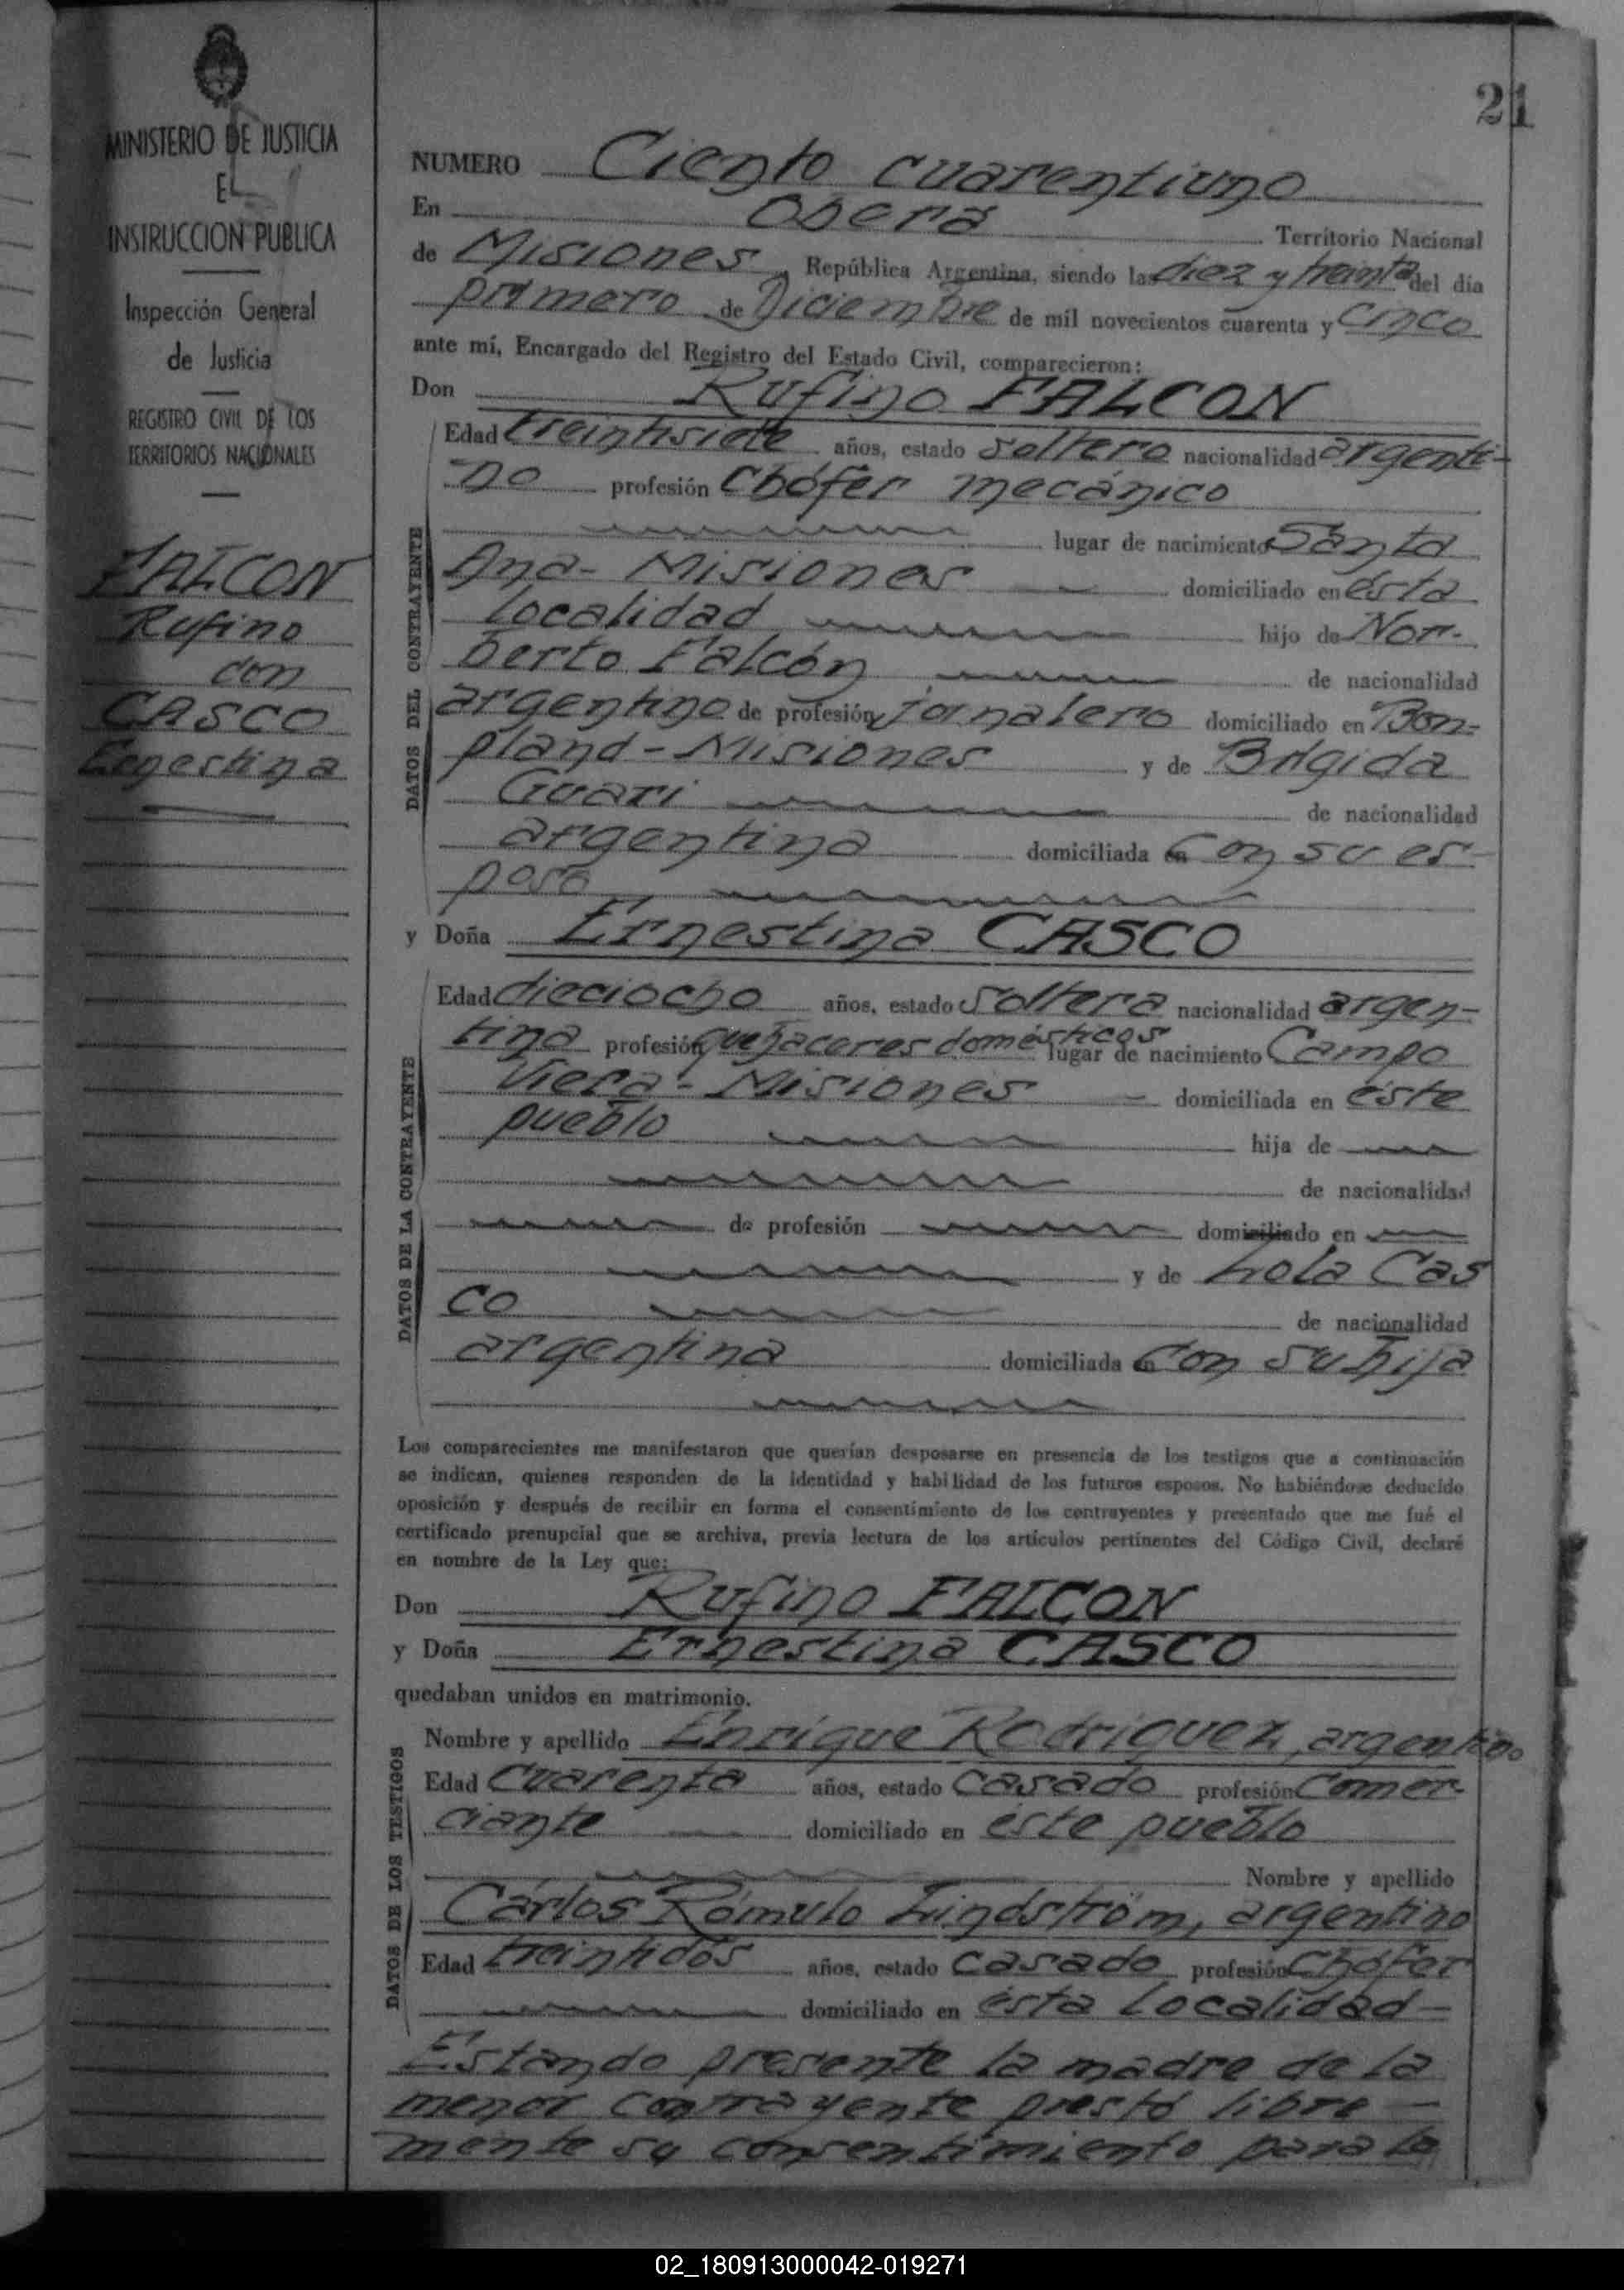 MINISTERIO DE JUSTICIA
E
INSTRUCCION PUBLICA
Inspección General
de Justicia
REGISTRO CIVIL DE LOS
TERRITORIOS NACIONALES
FALCON
Rufino
con
CASCO
Ernestina
21
NUMERO Ciento cuarentiuno
En Oberá Territorio Nacional
de Misiones, República Argentina, siendo las diez y treinta del día
primero de Diciembre de mil novecientos cuarenta y cinco
ante mí, Encargado del Registro del Estado Civil, comparecieron:
Don Rufino FALCON
DATOS DEL CONTRAYENTE
Edad treintisiete años, estado soltero nacionalidad argenti-
no profesión Chófer mecánico
lugar de nacimiento Santa
Ana - Misiones domiciliado en ésta
localidad hijo de Nor-
berto Falcón de nacionalidad
argentino de profesión jornalero domiciliado en Bon-
pland - Misiones y de Brígida
Guari de nacionalidad
argentina domiciliada en con su es-
poso
y Doña Ernestina CASCO
DATOS DE LA CONTRAYENTE
Edad dieciocho años, estado soltera nacionalidad argen-
tina profesión quehaceres domésticos lugar de nacimiento Campo
Viera - Misiones domiciliada en éste
pueblo hija de
de nacionalidad
de profesión domiciliado en
y de Lola Cas
co de nacionalidad
argentina domiciliada en con su hija
Los comparecientes me manifestaron que querían desposarse en presencia de los testigos que a continuación
se indican, quienes responden de la identidad y habilidad de los futuros esposos. No habiéndose deducido
oposición y después de recibir en forma el consentimiento de los contrayentes y presentado que me fué el
certificado prenupcial que se archiva, previa lectura de los artículos pertinentes del Código Civil, declaré
en nombre de la Ley que:
Don Rufino FALCON
y Doña Ernestina CASCO
quedaban unidos en matrimonio.
DATOS DE LOS TESTIGOS
Nombre y apellido Enrique Rodriguez, argentino
Edad cuarenta años, estado casado profesión comer-
ciante domiciliado en éste pueblo
Nombre y apellido
Cárlos Rómulo Lindström, argentino
Edad treintidós años, estado casado profesión chófer
domiciliado en ésta localidad -
Estando presente la madre de la
menor contrayente prestó libre -
mente su consentimiento para la
02_180913000042-019271